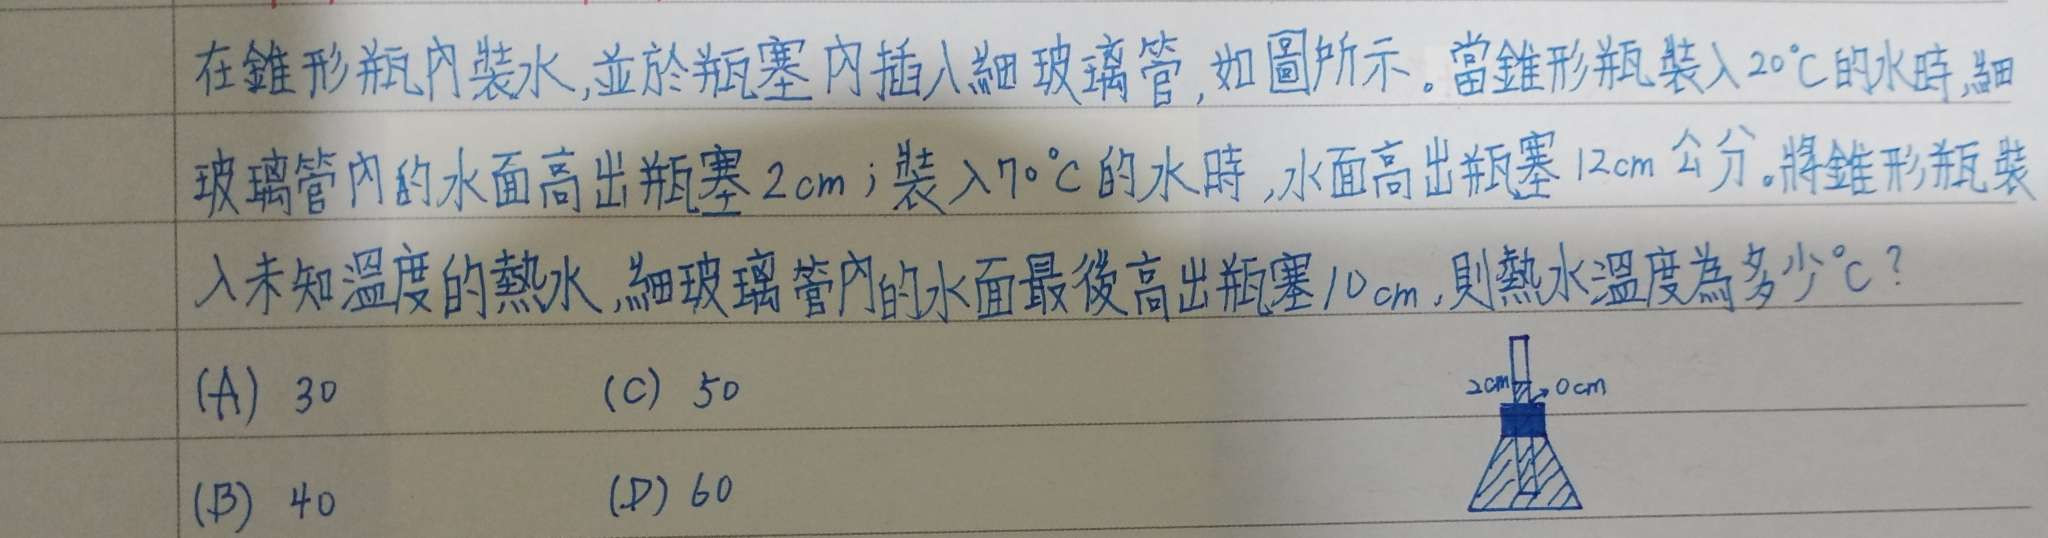 在錐形瓶內裝水,並於瓶塞內插入細玻璃管,如圖所示。當錐形瓶裝入20°C的水時,細
玻璃管內的水面高出瓶塞2cm;裝入70°C的水時,水面高出瓶塞12cm公分。將錐形瓶裝
入未知溫度的熱水,細玻璃管內的水面最後高出瓶塞10cm,則熱水溫度為多少°C?
(A) 30 (C) 50
2cm 0cm
(B) 40 (D) 60